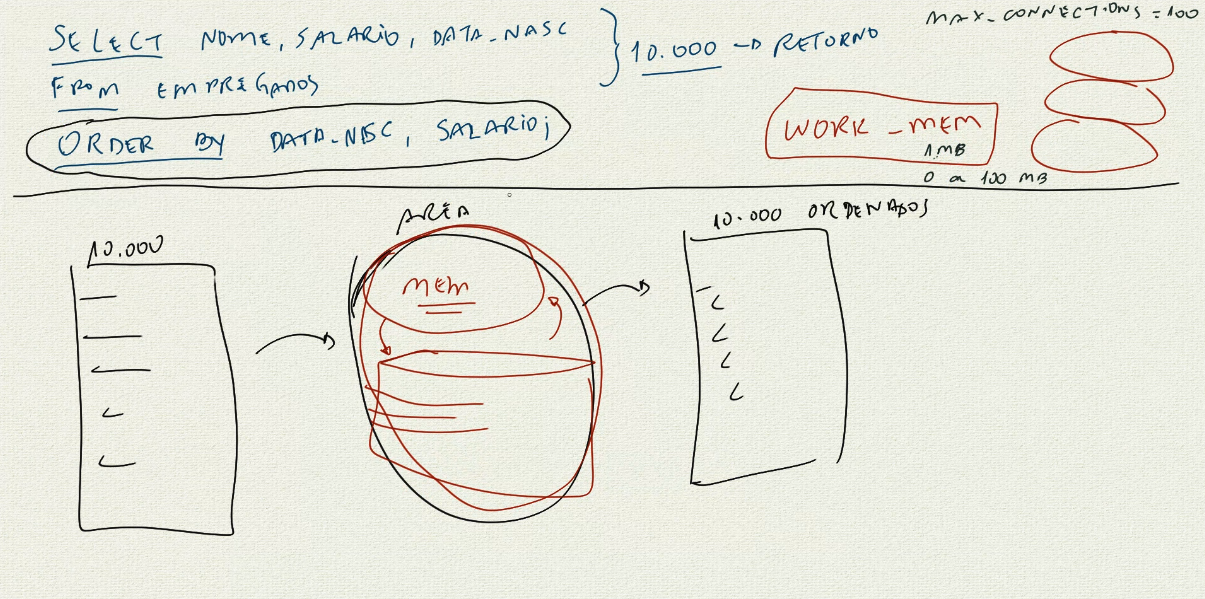 SELECT NOME, SALARIO, DATA_NASC
FROM EMPREGADOS
ORDER BY DATA_NASC, SALARIO;
10.000 → RETORNO
MAX_CONNECTIONS = 100
WORK_MEM
1MB
0 a 100 MB
10.000
AREA
MEM
10.000 ORDENADOS